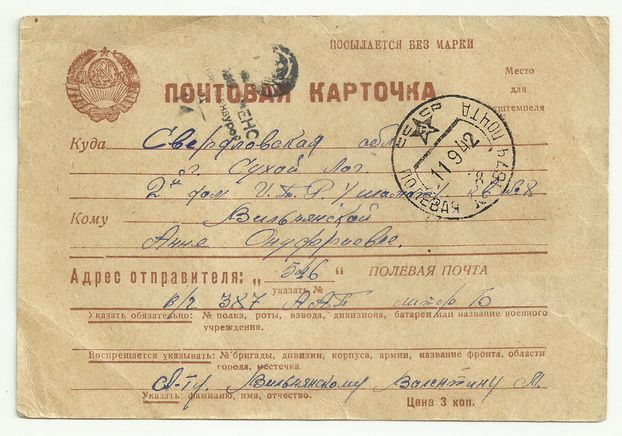 ПОСЫЛАЕТСЯ БЕЗ МАРКИ
ПОЧТОВАЯ КАРТОЧКА
Место
для
штемпеля
СССР
ПОЛЕВАЯ ПОЧТА
11 9 42
Куда Свердловская обл.
г. Сухой Лог
2й дом И.Т.Р. кв №8
Кому Вильнянской
Анне Онуфриевне.
Адрес отправителя: „ 526 “ ПОЛЕВАЯ ПОЧТА
указать №
в/ч 387 ААП литер Б
Указать обязательно: № полка, роты, взвода, дивизиона, батареи или название военного
учреждения.
Воспрещается указывать: № бригады, дивизии, корпуса, армии, название фронта, области
города, местечка
Вильнянскому Валентину М.
Указать: фамилию, имя, отчество.
Цена 3 коп.